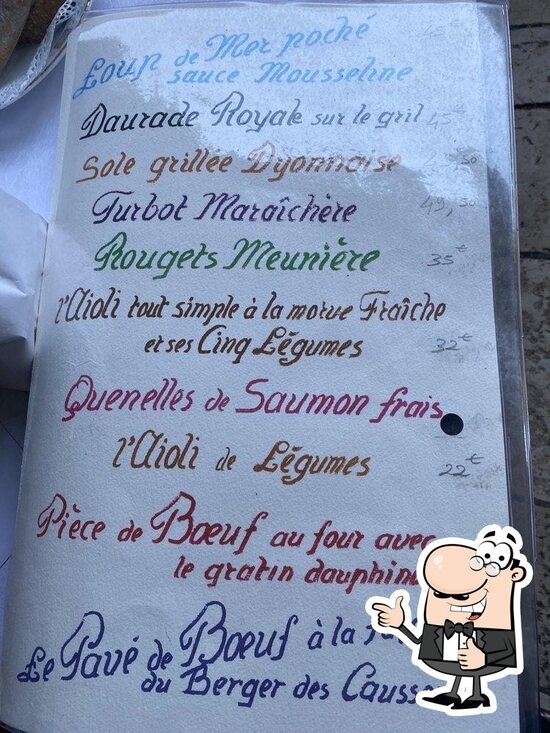 Loup de Mer poché 45€
sauce Mousseline
Daurade Royale sur le gril 45€
Sole grillée Dyonnaise
Turbot Maraîchère 49,50
Rougets Meunière 35€
l'Aioli tout simple à la morue Fraîche
et ses Cinq Légumes 32€
Quenelles de Saumon frais
l'Aioli de Légumes 22€
Pièce de Bœuf au four avec
le gratin dauphin
Le Pavé de Bœuf à la
du Berger des Causse